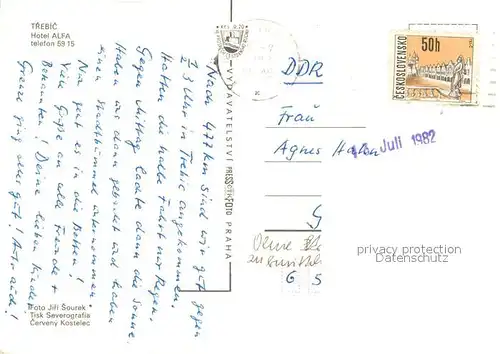 TŘEBÍČ
Hotel ALFA
telefon 59 15
Nach 477 km sind wir gut gegen
Uhr in Trebic angekommen.
Hatten die halbe Fahrt nur Regen.
Gegen Mittag lachte dann die Sonne.
Haben uns dann gebadet und haben
einen Stadtbummel unternommen
Nun geht es in die Betten!
Viele Grüße an alle Freunde +
Bekannten! Deine lieben Kinder
Grenze ging sehr gut! Auto auch!
Foto Jiří Šourek
Tisk Severografia
Červený Kostelec
KČS 0,70
VYDAVATELSTVÍ PRESSFOTO PRAHA
ČESKOSLOVENSKO
50h
DDR
Frau
Agnes
Juli 1982
G
Ohne
G 5
privacy protection
Datenschutz